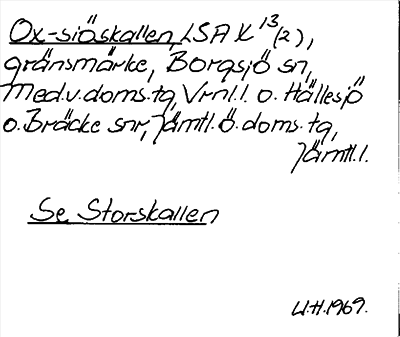 Ox-siöskallen, LSA K 13(2),
gränsmärke, Borgsjö sn,
Med.v.doms.tg, Vrnl.l. o. Hällesjö
o. Bräcke snr, Jämtl.ö.doms.tg,
Jämtl.l.
Se Storskallen
W.H. 1969.